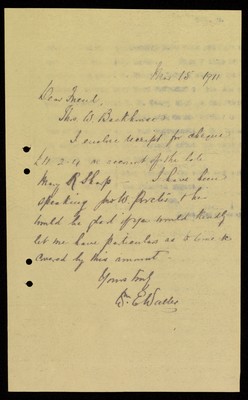 Mar 15 1911
Dear Friend,
Thos W Backhouse
I enclose receipt for cheque
on account of the late
Mary R Sharp. I have been
speaking to Procter & he
would be glad if you would kindly
let me have particulars as to time
covered by this amount.
Yours truly
E Waller